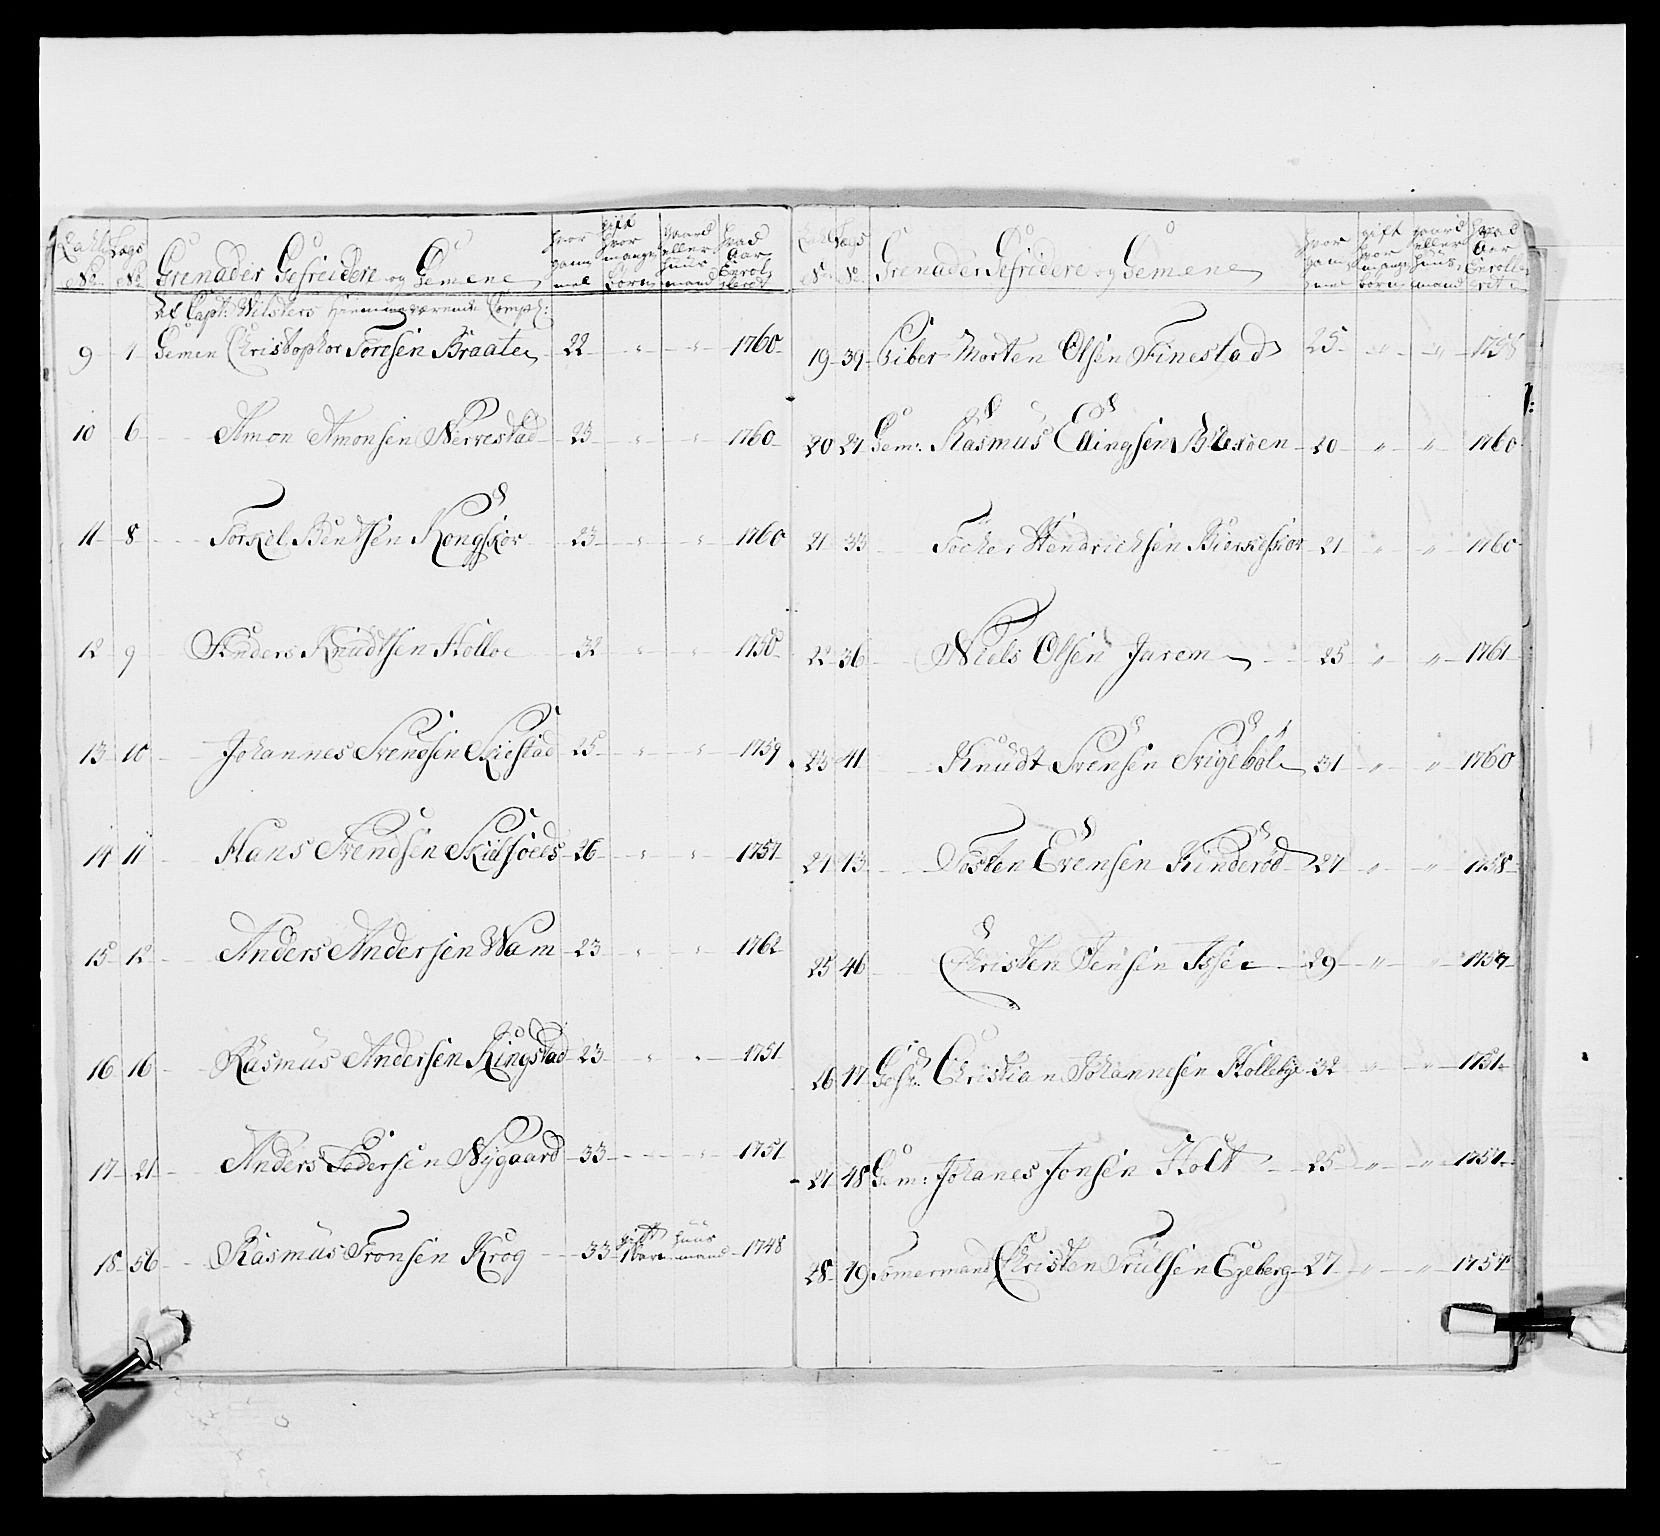 No No Grenader Gefreidere og Gemene hvor gammel gift hvor mange börn gaard eller huusmand hvad Aar Enrollerit
af Capt: Wilsters Compl:
9 1 Gemen Christopher Toresen Braaten 22 " " 1760
10 6 Amon Amonsen Nerrestad 23 " " 1760
11 8 Torkel Bentsen Kongskov 23 " " 1760
12 9 Anders Knudtsen Holloe 32 " " 1750
13 10 Johannes Svendsen Skiestad 25 " " 1759
14 11 Hans Svendsen 26 " " 1757
15 12 Anders Andersen Wam 23 " " 1762
16 16 Rasmus Andersen Ringstad 23 " " 1751
17 21 Anders Pedersen Nÿgaard 33 " 1751
18 56 Rasmus Tronsen Krog 33 gift 1 barn huusmand 1748
No No Grenader Gefreidere og Gemene hvor gammel gift hvor mange börn gaard eller huusmand hvad Aar Enrollerit
19 39 Piber Morten Olsen Finestad 25 " " 1758
20 27 Gem: Rasmus Ellingsen 20 " " 1760
21 33 Hendrichsen 21 " " 1760
22 36 Niels Olsen Jarem 25 " " 1761
23 41 Knudt Svensen Svigeböl 31 " " 1760
24 43 Tosten Evensen Kinderöd 27 " " 1758
25 46 Christen Jensen 29 " " 1757
26 47 Gefr: Christian Johannesen Hollebye 32 " " 1751
27 48 Gem: Johanes Jonsen Holt 25 " " 1757
28 49 Tömermand Christen Trulsen Egeberg 27 " " 1757